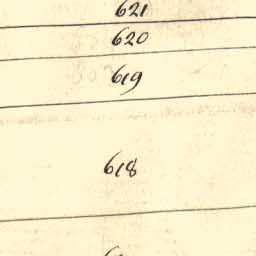 621
620
619
618